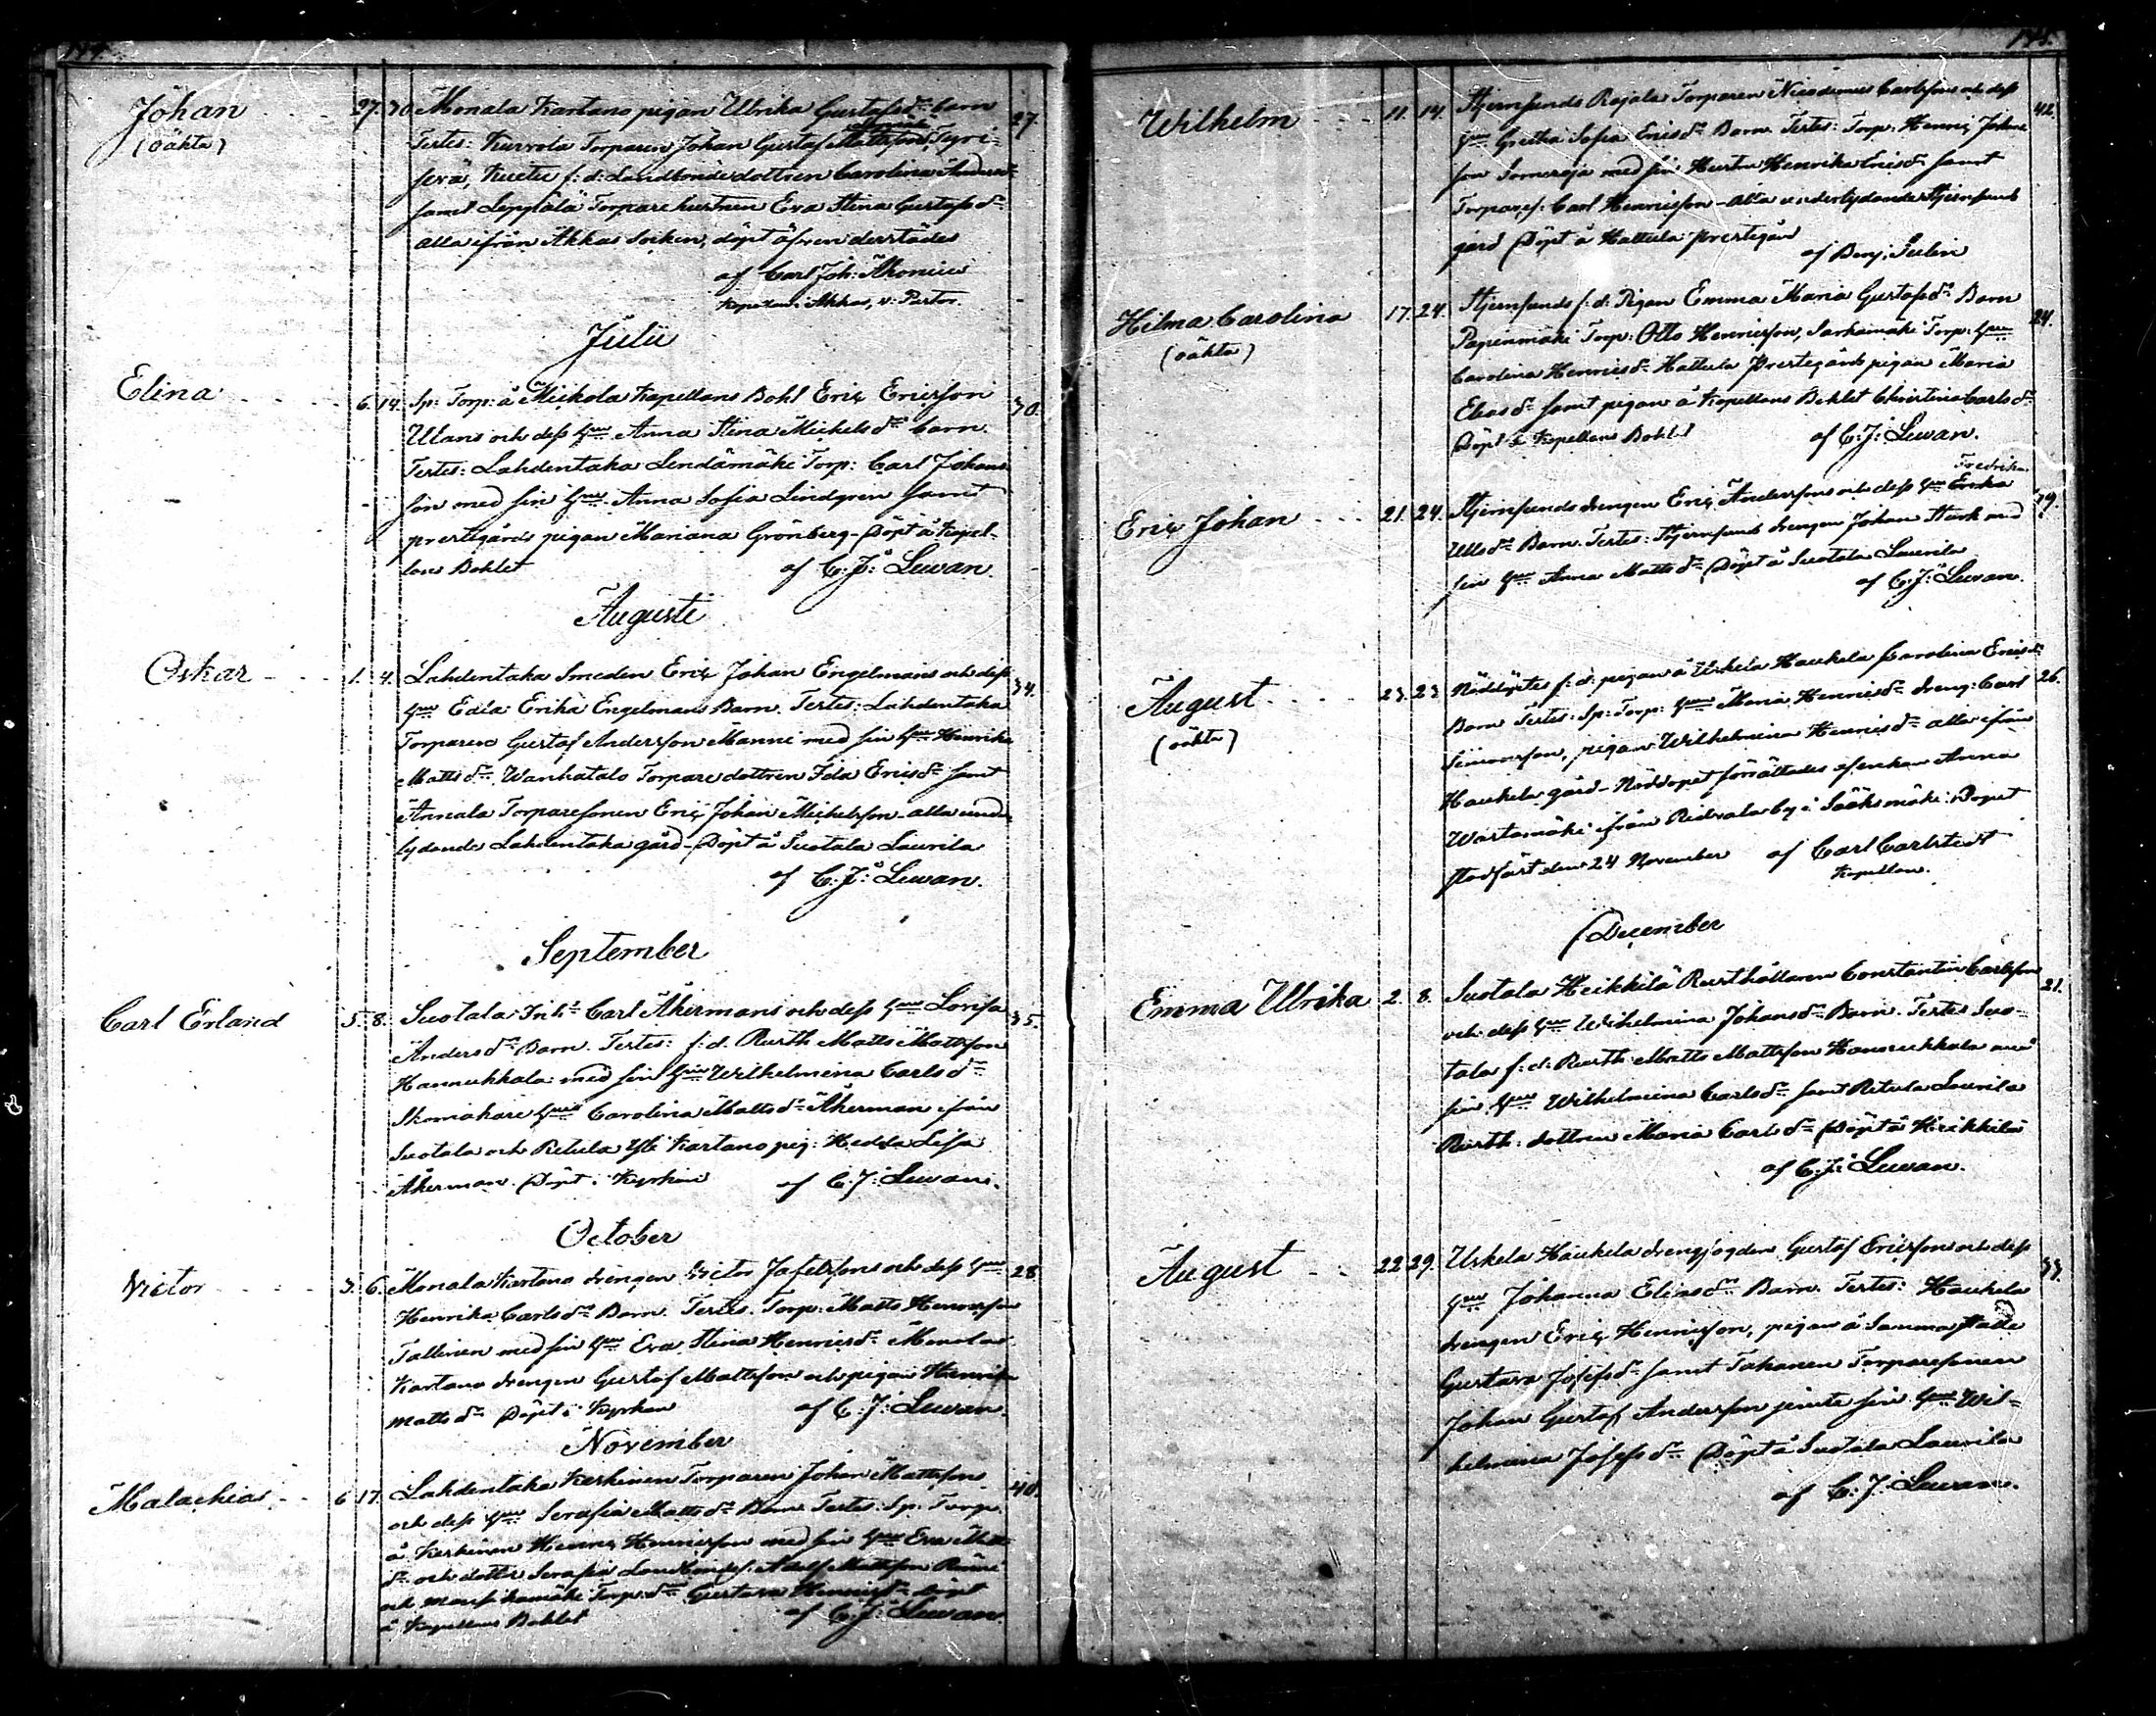 Johan 27. 30. Monala Kartano pigan Ulrika Gustafsdr barn 27.
(oäkta) Testes: Kurvola Torparen Johan Gustaf Mattsson,
f: d: Landbonde dottren Carolina Andersdr
samt Leppälä Torpare hustrun Eva Stina Gustafsdr
alla ifrån Akkas Socken, döpt äfven derstädes
af Carl Joh:
Kapellan i Akkas, v: Pastor.
Julii
Elina 6. 14. Sp: Torp: å Meikola Kapellans Bohl Eric Ericsson 30.
Ulans och dess Hru Anna Stina Mickelsdr barn.
Testes: Lahdentaka Lendämäki Torp: Carl Johans-
son med sin Hru Anna Sofia Lindgren samt
prestgårds pigan Mariana Grönberg - Döpt å Kapel-
lans Bohlet af C: J: Lewan.
Augusti
Oskar 1. 4. Lahdentaka Smeden Eric Johan Engelmans och dess 34.
Hru Edla Erika Engelmans Barn. Testes: Lahdentaka
Torparen Gustaf Andersson Manni med sin Hru Henrika
Mattsdr Wanhatalo Torpare dottren Ida Ericsdr samt
Annala Torparesonen Eric Johan Mickelsson - alla under
lydande Lahdentaka gård - Döpt å Suotala Laurila
af C: J: Lewan.
September
Carl Erland 5. 8. Suotala Inh: Carl Åkermans och dess Hru Lovisa 35.
Andersdr Barn. Testes: f: d. Rusth Matts Mattsson
Hannukkala med sin Hru Wilhelmina Carlsdr
Skomakare Hru Carolina Mattsdr Åkerman ifrån
Suotala och Retula Yli Kartano pig: Hedda Lisa
Åkerman. Döpt i Kyrkan af C: J: Lewan.
October
Victor 3. 6. Monala Kartano drengen Victor Jafetssons och dess Hru 28
Henrika Carlsdr Barn. Testes. Torp: Matts Henricsson
Tallinen med sin Hru Eva Stina Henricsdr Monala
Kartano drengen Gustaf Mattsson och pigan Henrika
Mattsdr Döpt i Kyrkan af C: J: Lewan.
November
Malachias 6 17. Lahdentaka Keskinen Torparen Johan Mattsson 40.
och dess Hru Serafia Mattsdr Barn Testes: Sp: Torp.
å Keskinen Henric Henricsson med sin Hru Eva Matts
dr och dotter Serafia Adolf Mattsson
och Torp. dr Gustava Henricsdr döpt
å Kapellans Bohlet af C: J: Lewan
Wilhelm 11. 14. Stjernsunds Rajala Torparen Nicodemus Carlssons och dess 42.
Hru Gretha Sofia Ericsdr Barn. Testes: Torp: Henric Johans
son Someroja med sin Hustru Henrika Ericsdr samt
Torpares: Carl Henricsson - alla underlydande Stjernsunds
gård Döpt å Hattula prestgård
af Benj: Sulin
Hilma Carolina 17. 24. Stjernsunds f: d: Pigan Emma Maria Gustafsdr Barn 24.
(oäkta) Papinmäki Torp: Otto Henricsson, Sarkamäki Torp: Hru
Carolina Henricsdr Hattula Prestgårds pigan Maria
Eliasdr samt pigan å Kapellans Bohlet Christina Carlsdr
Döpt å Kapellans Bohlet af C: J: Lewan.
Fredrika
Eric Johan 21. 24. Stjernsunds drengen Eric Anderssons och dess Hru Erika 29.
Ullsdr Barn. Testes: Stjernsunds drengen Johan Stark med
sin Hru Anna Mattsdr Döpt å Suotala Laurila
af C: J: Lewan.
August 23. 23 Nöddöptes f: d: pigan å Uskela Haukela Carolina Ericsdr 26.
(oäkta) Barn Testes: Sp: Torp: Hru Maria Henricsdr dreng: Carl
Simonsson, pigan Wilhelmina Henricsdr alla ifrån
Haukela gård - Nöddopet förrättades af enkan Anna
Wartamäki ifrån Ridvala by i Sääksmäki: Dopet
stadfäst den 24 November af Carl Carlstedt
Kapellan.
December
Emma Ulrika 2. 8. Suotala Heikkilä Rusthållaren Constantin Carlsson 21.
och dess Hru Wilhelmina Johansdr Barn. Testes Suo-
tala f: d: Rusth: Matts Mattsson Hannukkala med
sin Hru Wilhelmina Carlsdr samt Retula Laurila
Rusth: dottren Maria Carlsdr Döpt å Heikkilä
af C: J: Lewan.
August 22 29. Uskela Haukela drengfogden Gustaf Ericsson och dess 33.
Hru Johanna Eliasdr Barn. Testes: Haukela
drengen Eric Henricsson, pigan å samma ställe
Gustava Josefsdr samt Tahanen Torparesonen
Johan Gustaf Andersson jemte sin Hru Wil-
helmina Josefsdr Döpt å Suotala Laurila
af C: J: Lewan.